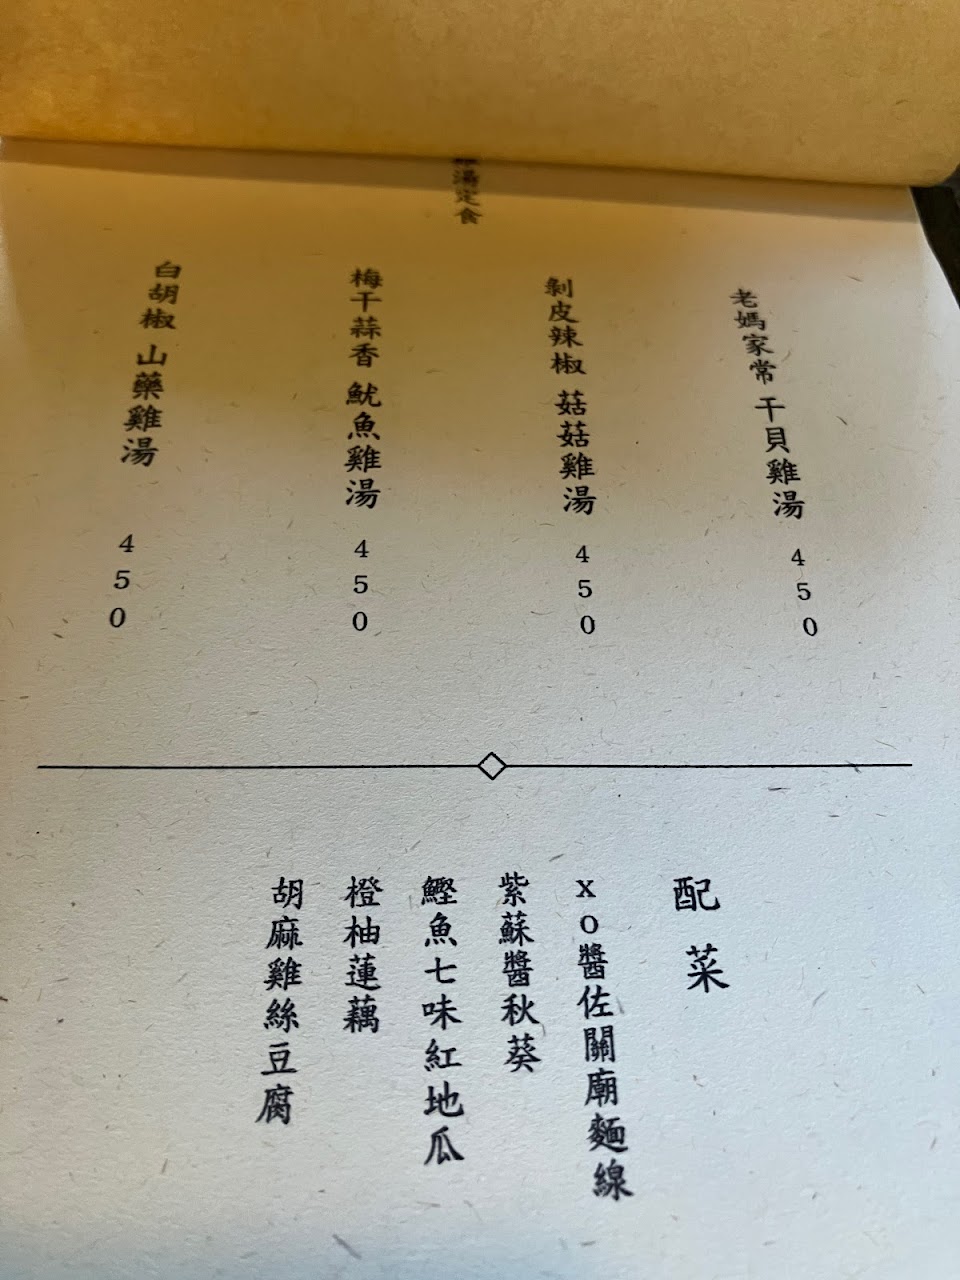 雞湯定食
老媽家常 干貝雞湯 450
剝皮辣椒 菇菇雞湯 450
梅干蒜香 魷魚雞湯 450
白胡椒 山藥雞湯 450
配菜
xo醬佐關廟麵線
紫蘇醬秋葵
鰹魚七味紅地瓜
橙柚蓮藕
胡麻雞絲豆腐